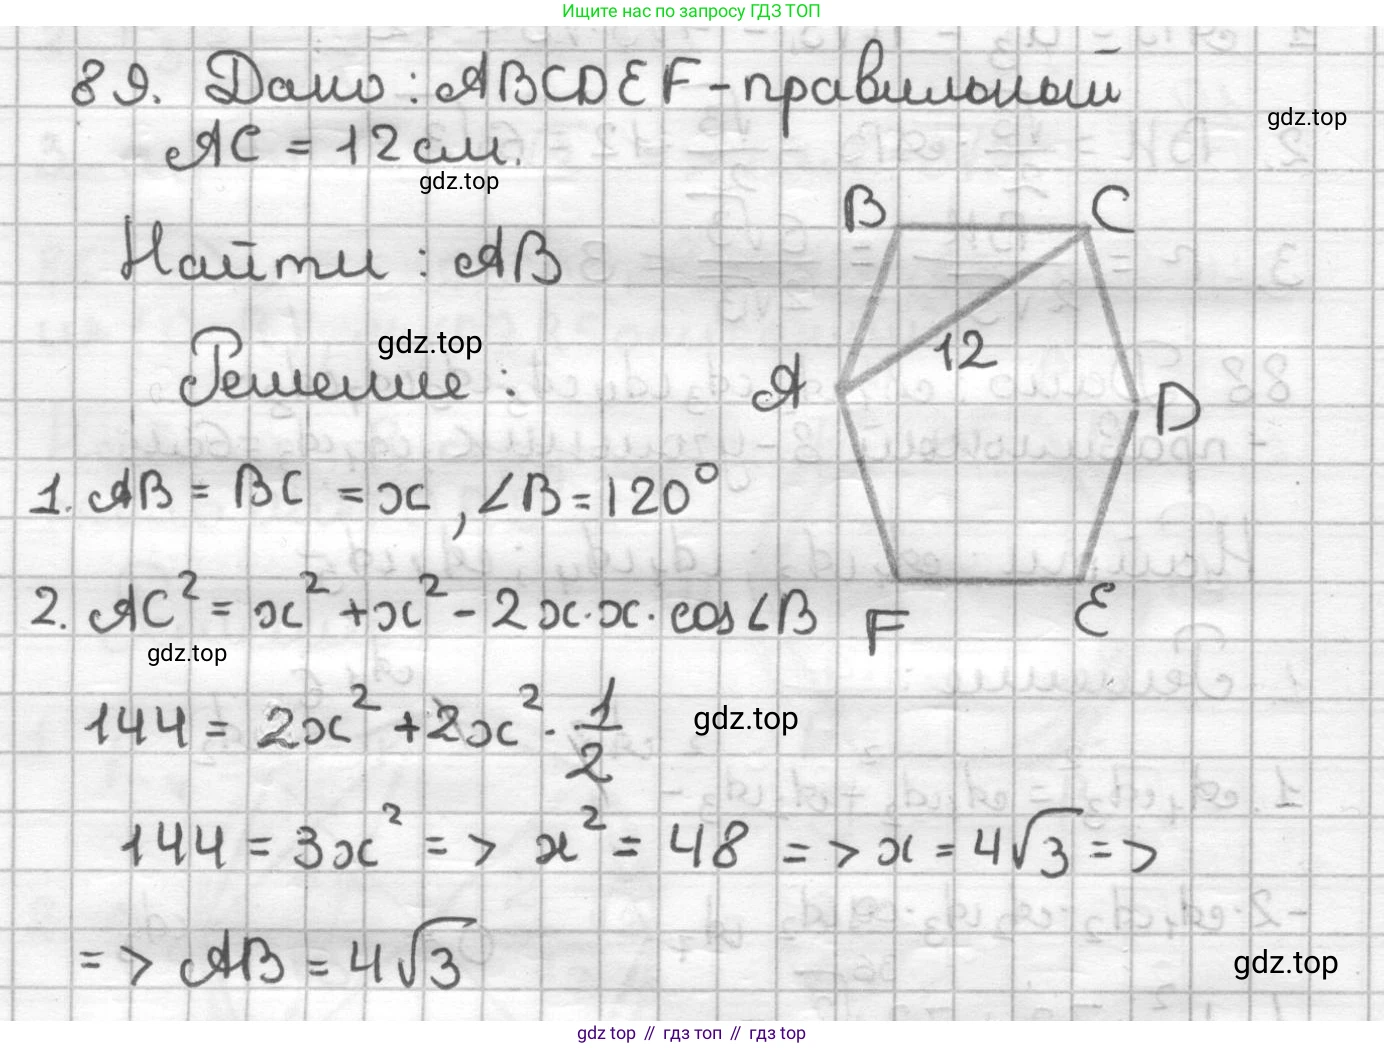 Ищите нас по запросу ГДЗ ТОП
89. Дано: ABCDEF - правильный
AC = 12 см.
gdz.top
gdz.top
B C
Найти: AB
12
gdz.top
Решение:
A
D
1. AB = BC = x, ∠B = 120°
2. AC² = x² + x² - 2x·x·cos∠B
F E
gdz.top
144 = 2x² + 2x² · 1/2
gdz.top
144 = 3x² => x² = 48 => x = 4√3 =>
=> AB = 4√3
gdz.top
gdz top // гдз топ // гдз top